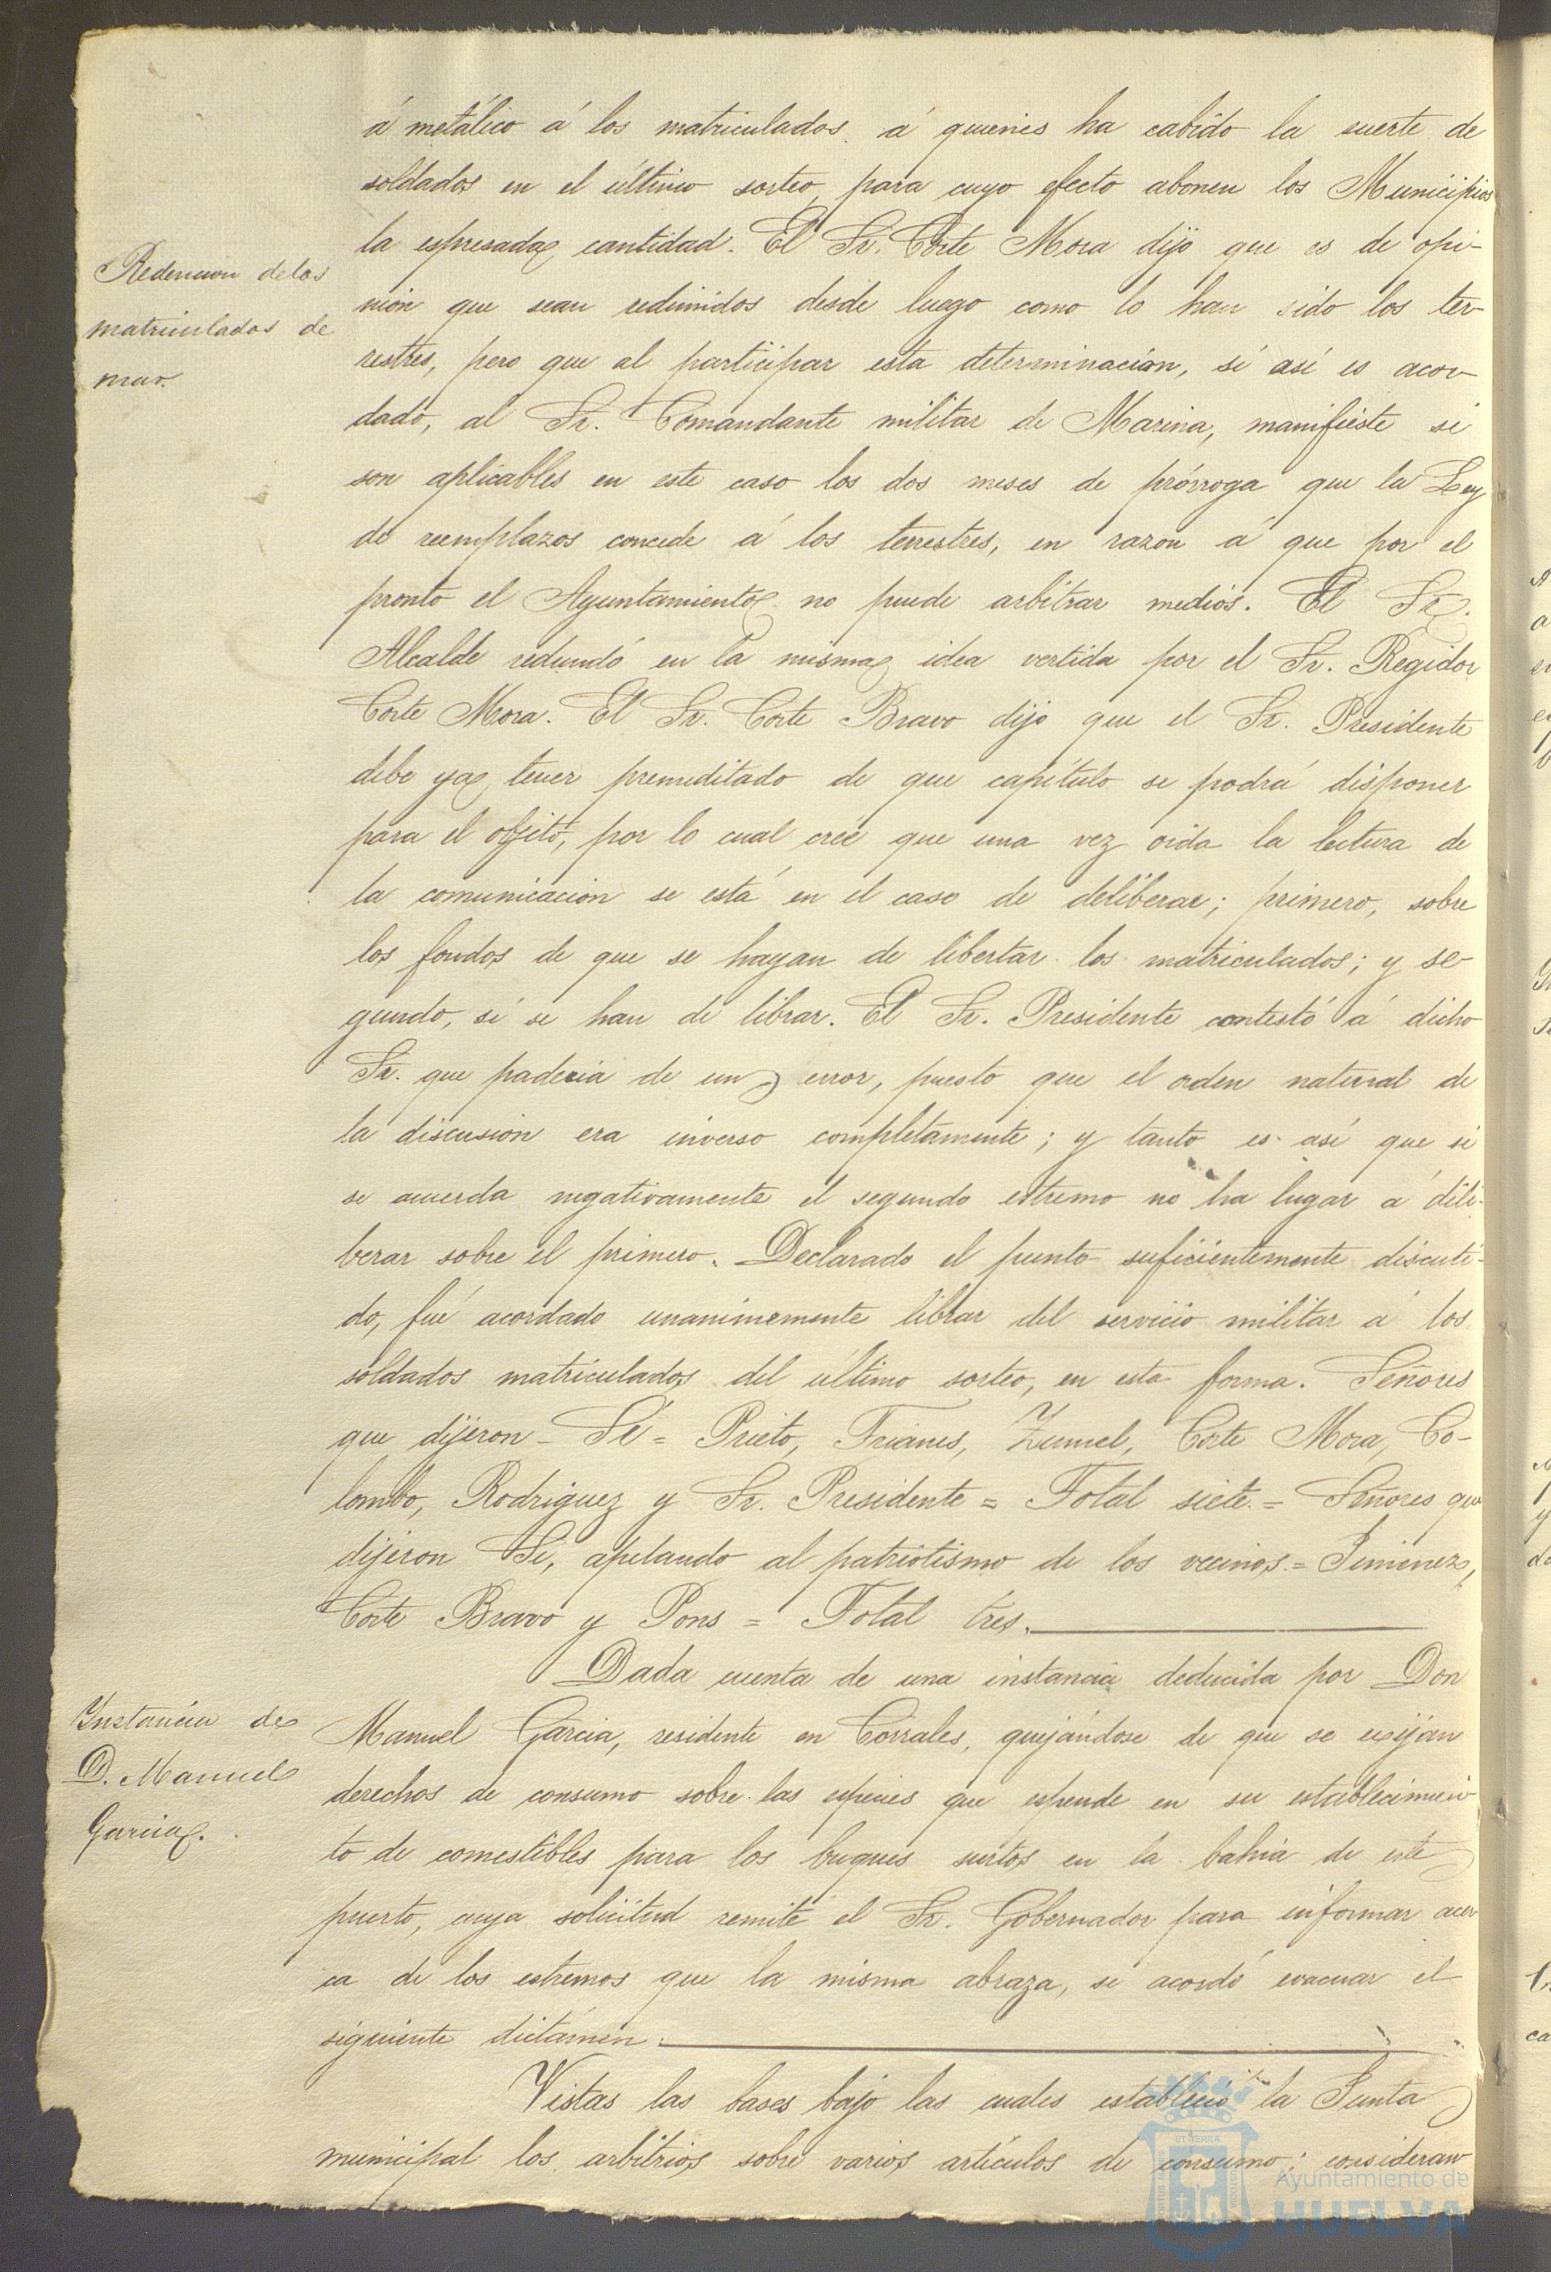 á metálico á los matriculados á quienes ha cabido la suerte de
soldados en el último sorteo, para cuyo efecto abonen los Municipios
la espresada cantidad. El Sr. Corte Mora dijo que es de opi-
Redencion de los
matriculados de
mar.
nión que sean redimidos desde luego como lo han sido los ter-
restres, pero que al participar esta determinación, sí así es acor-
dado, al Sr. Comandante militar de Marina, manifieste si
son aplicables en este caso los dos meses de prórroga que la Ley
de reemplazos concede á los terrestres, en razon á que por el
pronto el Ayuntamiento no puede arbitrar medios. El Sr.
Alcalde redundó en la misma idea vertida por el Sr. Regidor
Corte Mora. El Sr. Corte Bravo dijo que el Sr. Presidente
debe ya tener premeditado de que capítulo se podrá disponer
para el objeto, por lo cual cree que una vez oida la lectura de
la comunicación se está en el caso de deliberar; primero, sobre
los fondos de que se hayan de libertar los matriculados; y se-
gundo, sí se han de librar. El Sr. Presidente contestó á dicho
Sr. que padecia de un error, puesto que el orden natural de
la discusión era inverso completamente; y tanto es así que si
se acuerda negativamente el segundo estremo no ha lugar á deli-
berar sobre el primero. Declarado el punto suficientemente discuti-
do, fué acordado unanimemente librar del servicio militar á los
soldados matriculados del último sorteo, en esta forma. Señores
que dijeron - Sí = Prieto, Trianes, Zunel, Corte Mora, Co-
lombo, Rodriguez y Sr. Presidente = Total siete. = Señores que
dijeron Sí, apelando al patriotismo de los vecinos. = Jimenez,
Corte Bravo y Pons = Total tres.
Dada cuenta de una instancia deducida por Don
Instancia de
D. Manuel
Garcia.
Manuel Garcia, residente en Corrales, quejándose de que se exijan
derechos de consumo sobre las especies que espende en su establecimien-
to de comestibles para los buques surtos en la bahia de este
puerto, cuya solicitud remite el Sr. Gobernador para informar acer-
ca de los estremos que la misma abraza, se acordó evacuar el
siguiente dictámen.
Vistas las bases bajo las cuales estableció la Junta
municipal los arbitrios sobre varios artículos de consumo; consideran-
Ayuntamiento de
HUELVA